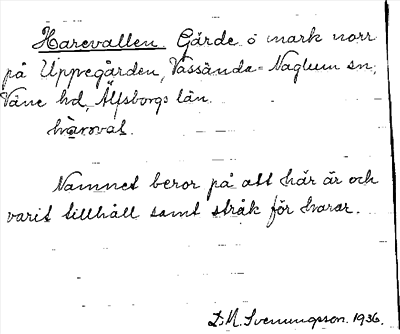 Harevallen. Gärde o mark norr
på Uppegården, Vassända-Naglum sn,
Väne hd, Älfsborgs län.
haroval.
Namnet beror på att här är och
varit tillhåll samt stråk för harar.
L. M. Svenungsson. 1936.